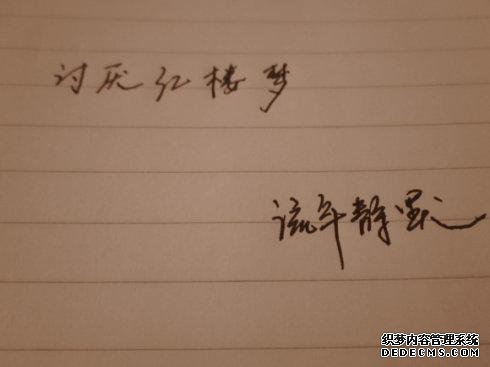 讨厌红楼梦
流年静墨
织梦内容管理系统
DEDECMS.COM